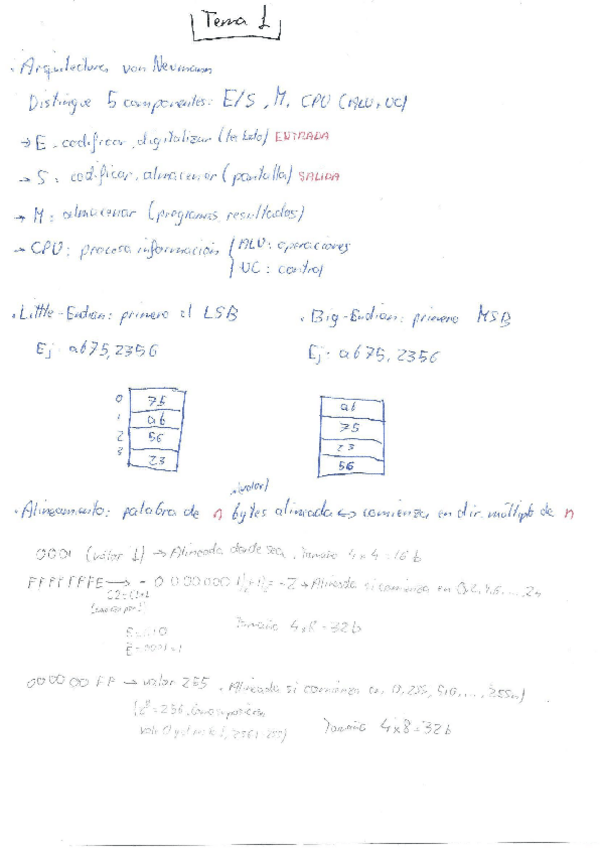 Tema 1
· Arquitectura von Neumann
Distingue 5 componentes: E/S, M, CPU (ALU, UC)
→ E: codificar, digitalizar (teclado) ENTRADA
→ S: codificar, almacenar (pantalla) SALIDA
→ M: almacenar (programas, resultados)
→ CPU: procesa información { ALU: operaciones
UC: control
· Little-Endian: primero el LSB
Ej: ab75,2356
0 75
1 ab
2 56
3 23
· Big-Endian: primero MSB
Ej: ab75,2356
ab
75
23
56
(valor)
· Alineamiento: palabra de n bytes alineada ↔ comienza en dir. múltiplo de n
0001 (valor 1) → Alineada donde sea. Tamaño 4x4=16 b
FFFFFFFE → - 0000000 = -2 → Alineada si comienza en 0,2,4,6,...,2n
C2=C1+1
Tamaño 4x8=32b
E=0001=1
000000FF → valor 255. Alineada si comienza en 0,255,510,...,255n)
Tamaño 4x8=32b